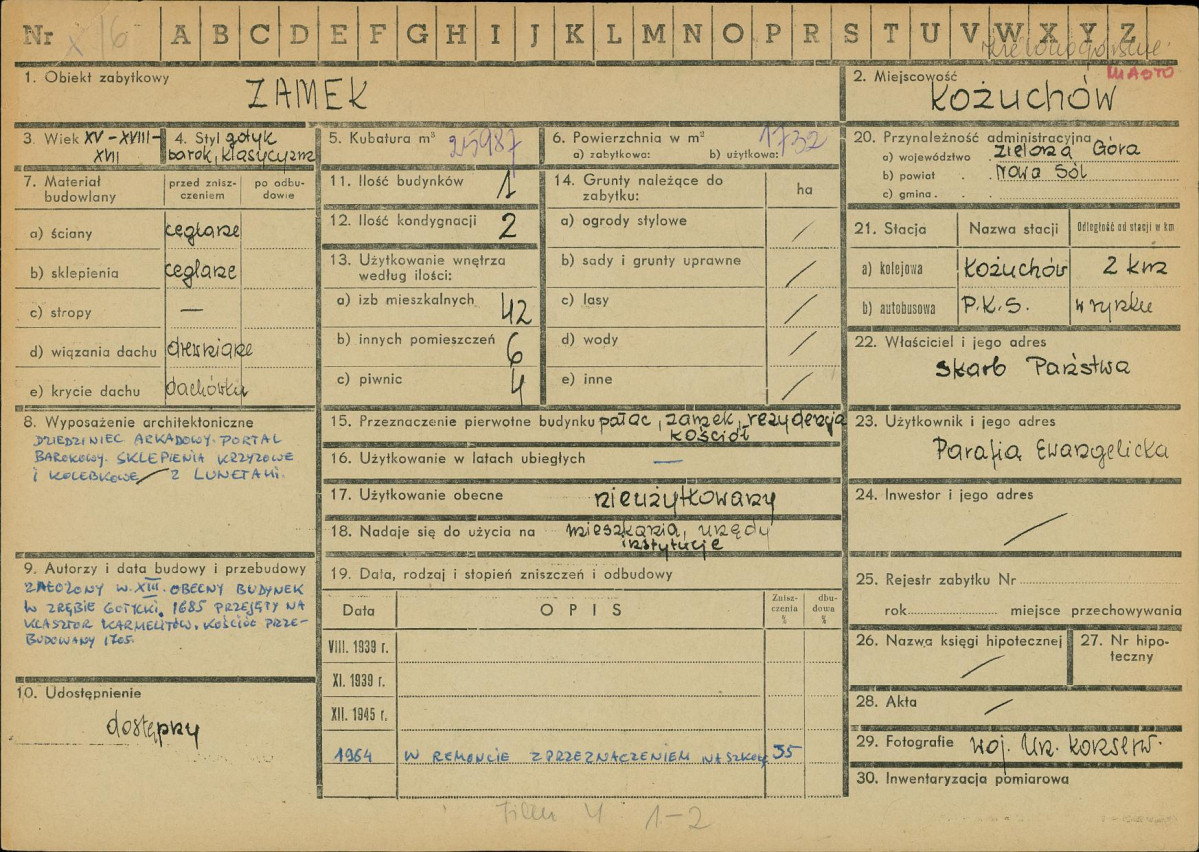 Nr X 16 A B C D E F G H I J K L M N O P R S T U V W X Y Z
zielonogórskie
MIASTO
1. Obiekt zabytkowy
ZAMEK
2. Miejscowość
KOŻUCHÓW
3. Wiek XV-XVIII-
XVII
4. Styl gotyk
barok, klasycyzm
5. Kubatura m³ 25987
6. Powierzchnia w m² 1732
a) zabytkowa: b) użytkowa:
7. Materiał budowlany
przed zniszczeniem
po odbudowie
a) ściany ceglane
b) sklepienia ceglane
c) stropy —
d) wiązania dachu drewniane
e) krycie dachu dachówka
8. Wyposażenie architektoniczne
DZIEDZINIEC ARKADOWY. PORTAL
BAROKOWY. SKLEPIENIA KRZYŻOWE
I KOLEBKOWE Z LUNETAMI.
9. Autorzy i data budowy i przebudowy
ZAŁOŻONY W. XIII. OBECNY BUDYNEK
W ZRĘBIE GOTYCKI. 1685 PRZEJĘTY NA
KLASZTOR KARMELITÓW. KOŚCIÓŁ PRZE-
BUDOWANY 1705.
10. Udostępnienie
dostępny
11. Ilość budynków 1
12. Ilość kondygnacji 2
13. Użytkowanie wnętrza
według ilości:
a) izb mieszkalnych 42
b) innych pomieszczeń 6
c) piwnic 4
14. Grunty należące do
zabytku:
ha
a) ogrody stylowe /
b) sady i grunty uprawne /
c) lasy /
d) wody /
e) inne /
15. Przeznaczenie pierwotne budynku pałac, zamek, rezydencja
kościół
16. Użytkowanie w latach ubiegłych —
17. Użytkowanie obecne nieużytkowany
18. Nadaje się do użycia na mieszkania, urzędy
instytucje
19. Data, rodzaj i stopień zniszczeń i odbudowy
Data OPIS
Zniszczenia %
dbudowa %
VIII. 1939 r.
XI. 1939 r.
XII. 1945 r.
1964 W REMONCIE Z PRZEZNACZENIEM NA SZKOŁ. 35
20. Przynależność administracyjna
a) województwo Zielona Góra
b) powiat Nowa Sól
c) gmina
21. Stacja Nazwa stacji Odległość od stacji w km
a) kolejowa Kożuchów 2 km
b) autobusowa P.K.S. w rynku
22. Właściciel i jego adres
Skarb Państwa
23. Użytkownik i jego adres
Parafia Ewangelicka
24. Inwestor i jego adres
/
25. Rejestr zabytku Nr
rok miejsce przechowywania
26. Nazwa księgi hipotecznej
/
27. Nr hipo-
teczny
28. Akta /
29. Fotografie Woj. Urz. Konserw.
30. Inwentaryzacja pomiarowa
Film 4 1-2